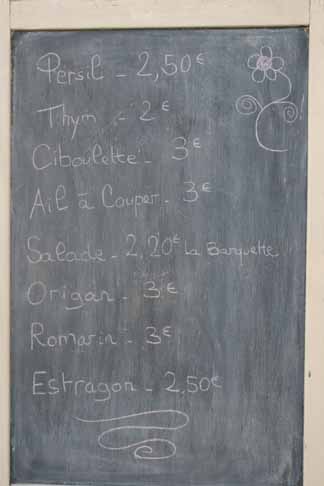 Persil - 2,50€
Thym - 2€
Ciboulette - 3€
Ail à Couper - 3€
Salade - 2,20€ La Barquette
Origan - 3€
Romarin - 3€
Estragon - 2,50€